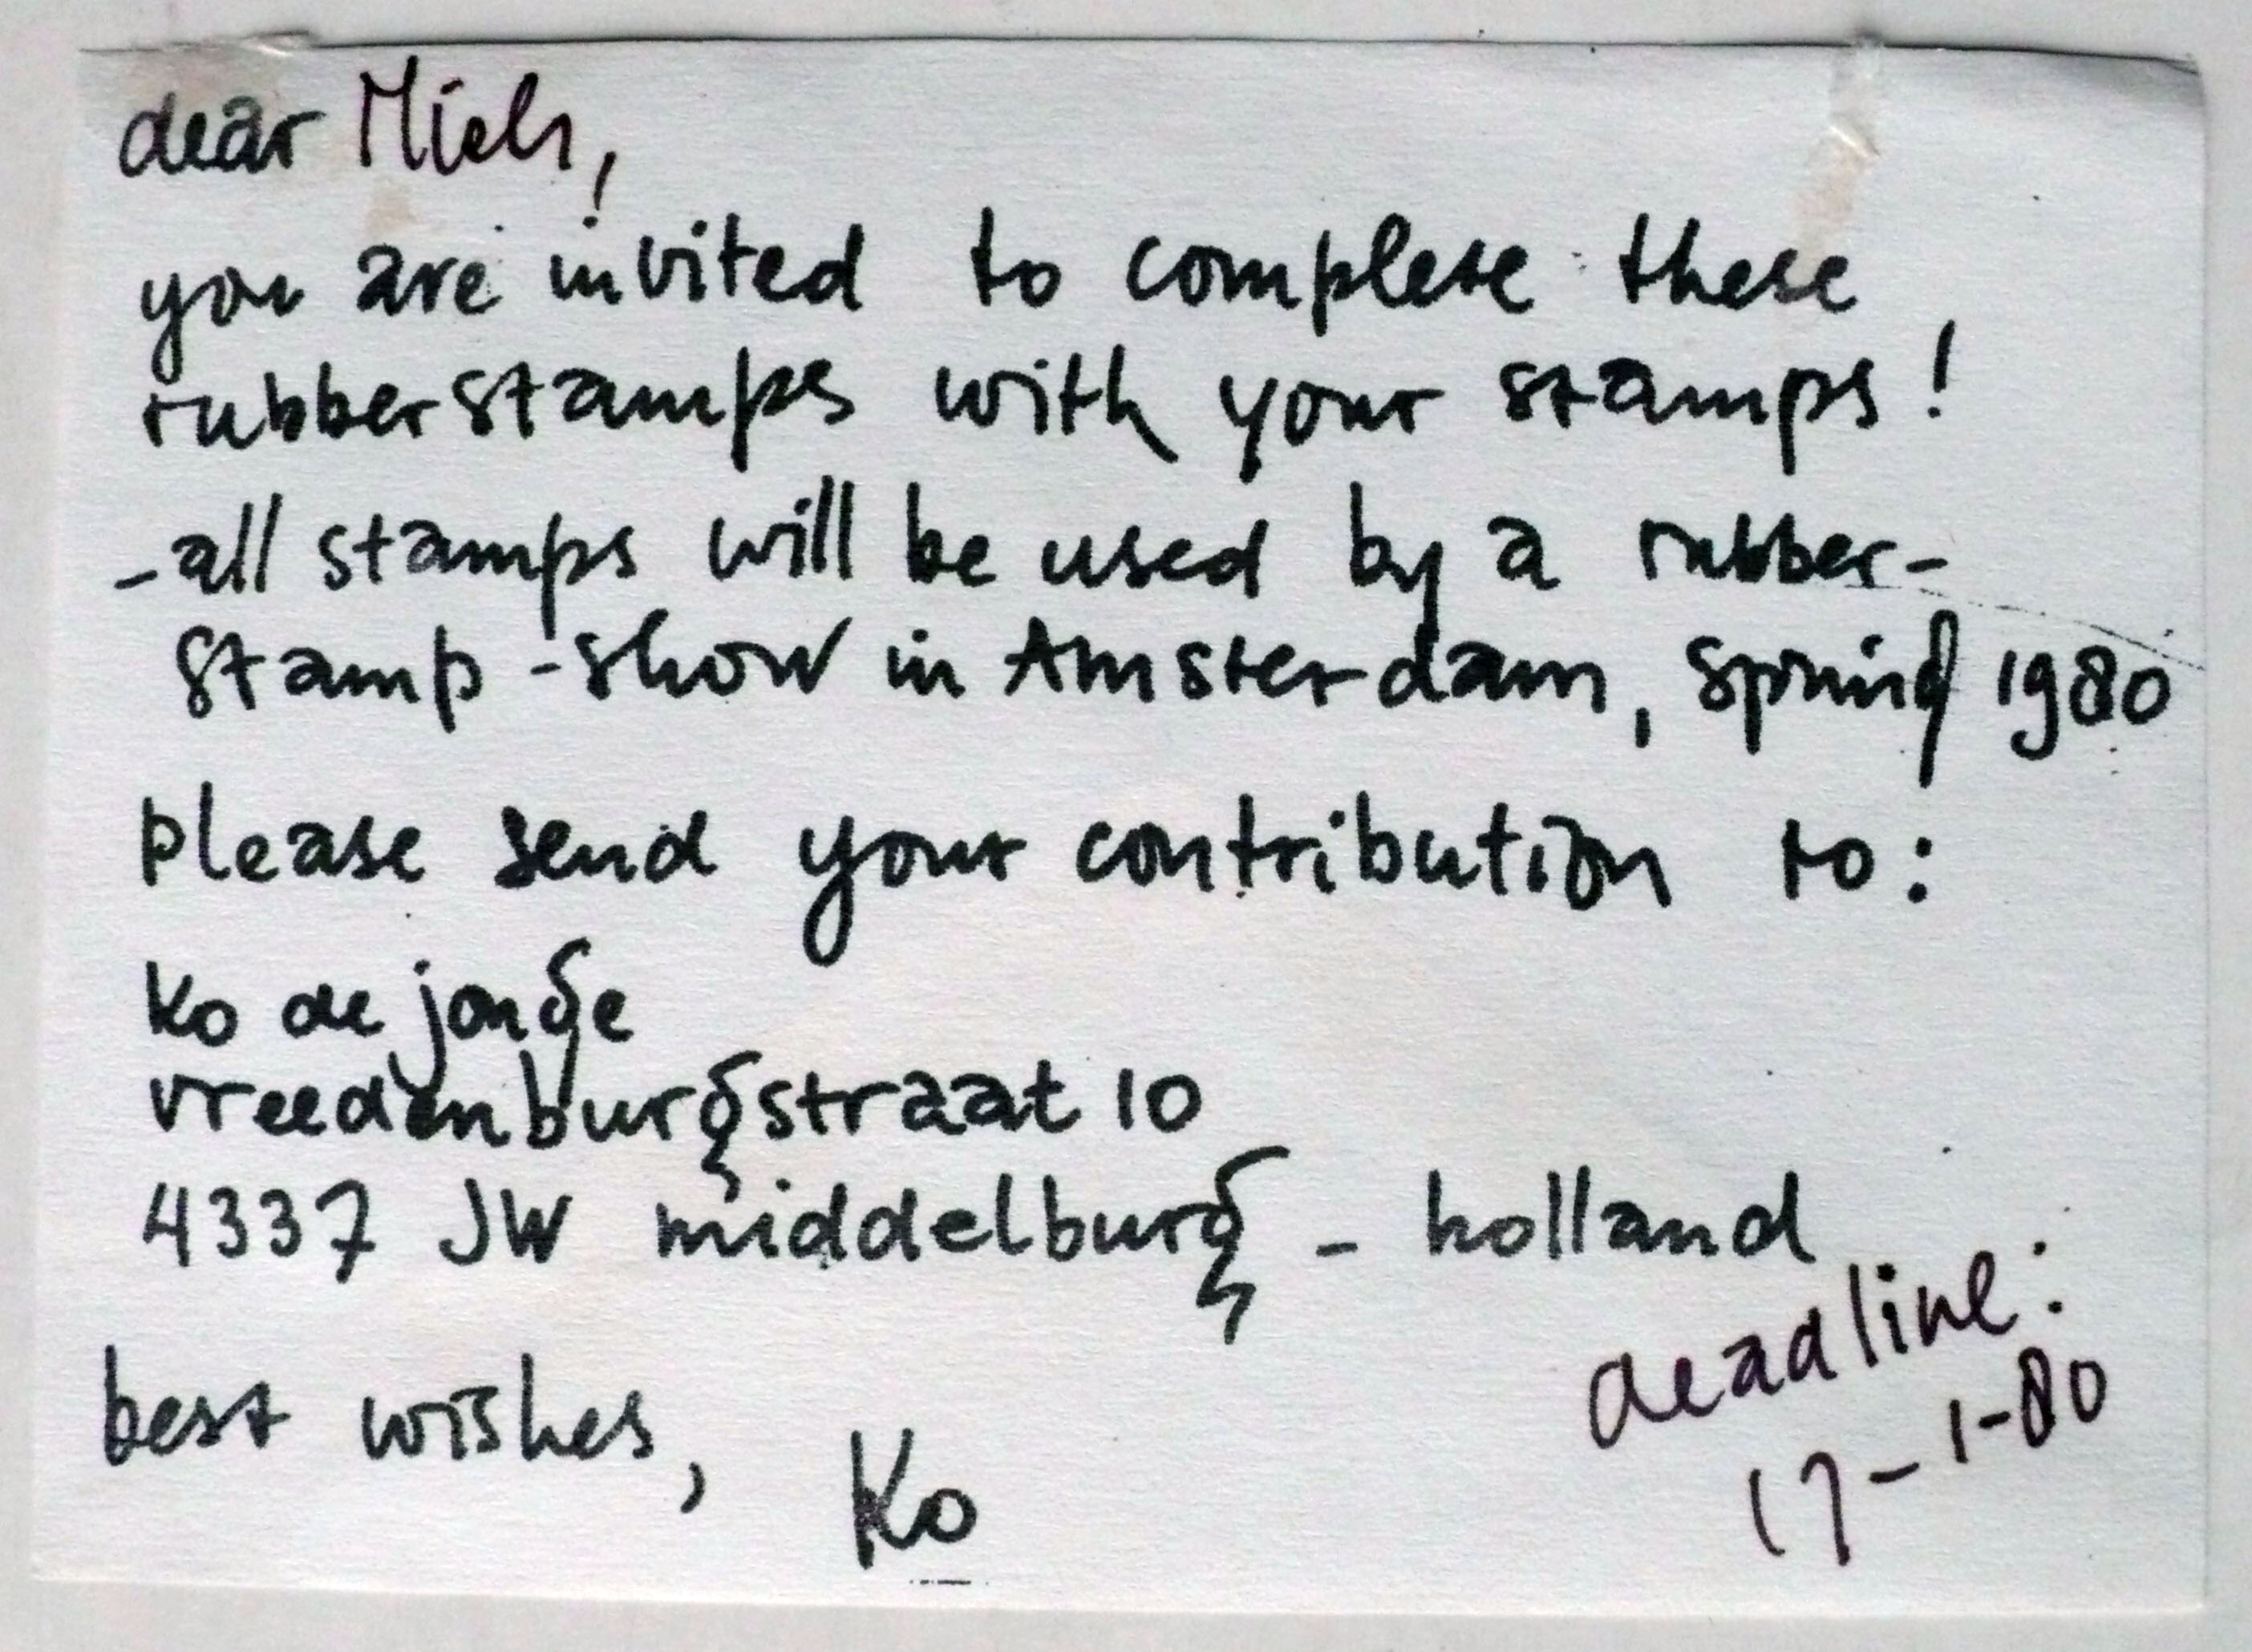 dear Miels,
you are invited to complete these
rubberstamps with your stamps!
- all stamps will be used by a rubber-
stamp-show in Amsterdam, spring 1980
please send your contribution to:
ko de jonge
vreedenburgstraat 10
4337 JW middelburg - holland
deadline:
17-1-80
best wishes, Ko